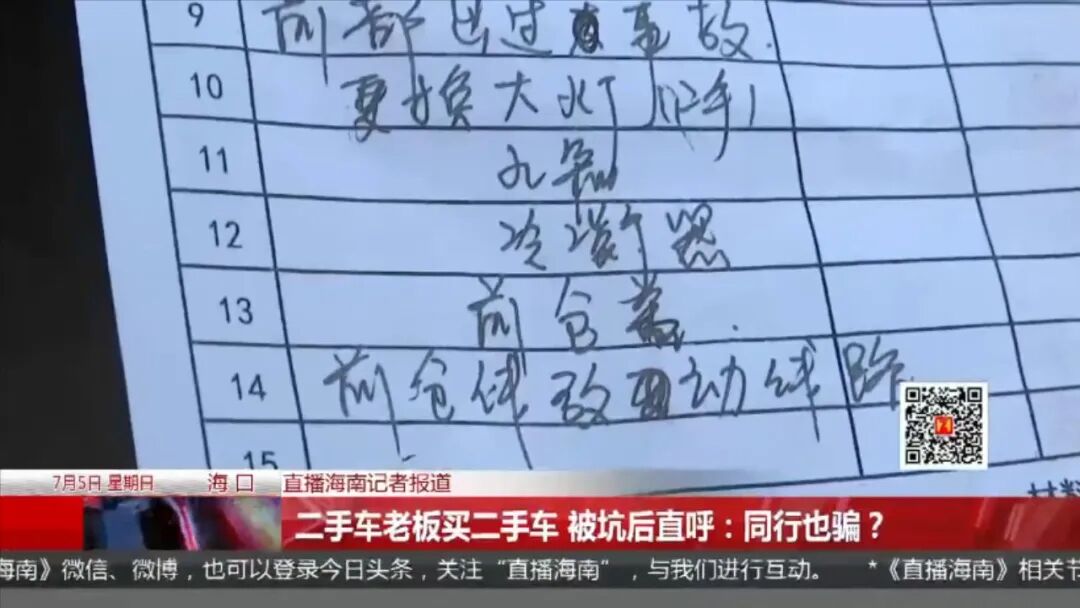 9 前部出过事故.
10 更换大灯
11
12 冷凝器
13 前仓盖.
14 前仓线改动线路.
15
7月5日 星期日 海口 直播海南记者报道
二手车老板买二手车 被坑后直呼：同行也骗？
海南》微信、微博，也可以登录今日头条，关注“直播海南”，与我们进行互动。 *《直播海南》相关节